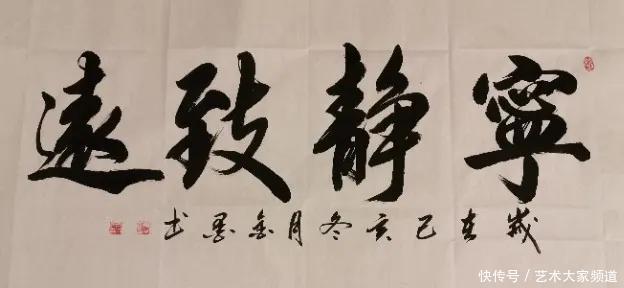 寧静致遠
歲在己亥冬月金墨书
快传号 / 艺术大家频道